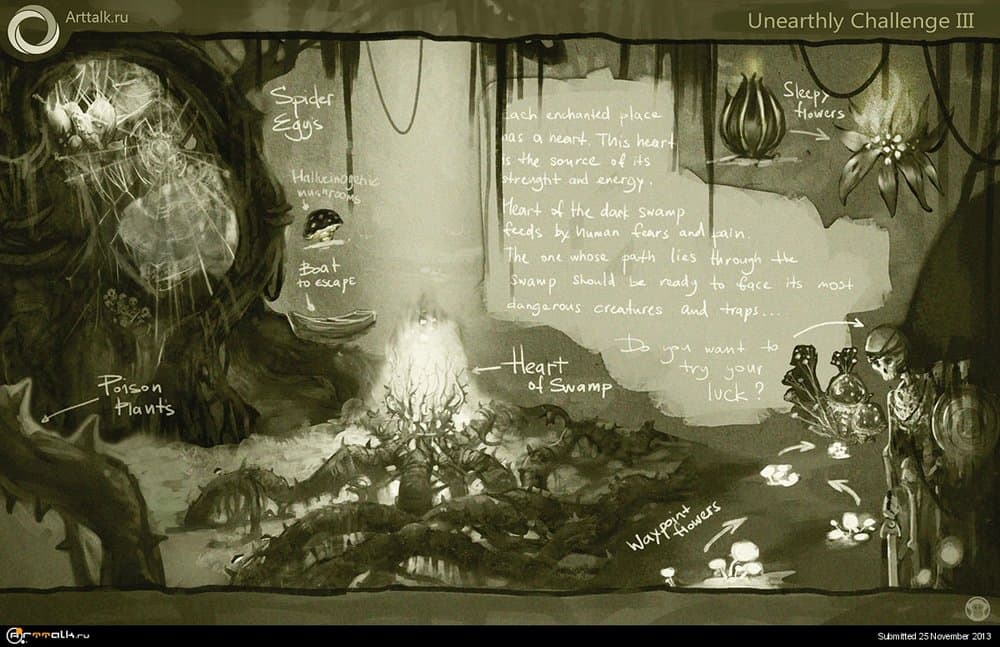 Arttalk.ru
Unearthly Challenge III
Spider
Eggs
Hallucinogenic
mushrooms
Boat
to escape
Each enchanted place
has a heart. This heart
is the source of its
strenght and energy.
Heart of the dark swamp
feeds by human fears and pain.
The one whose path lies through the
swamp should be ready to face its most
dangerous creatures and traps...
Do you want to
try your
luck?
Sleepy
flowers
Heart
of Swamp
Poison
Plants
Waypoint
flowers
Arttalk.ru
Submitted 25 November 2013